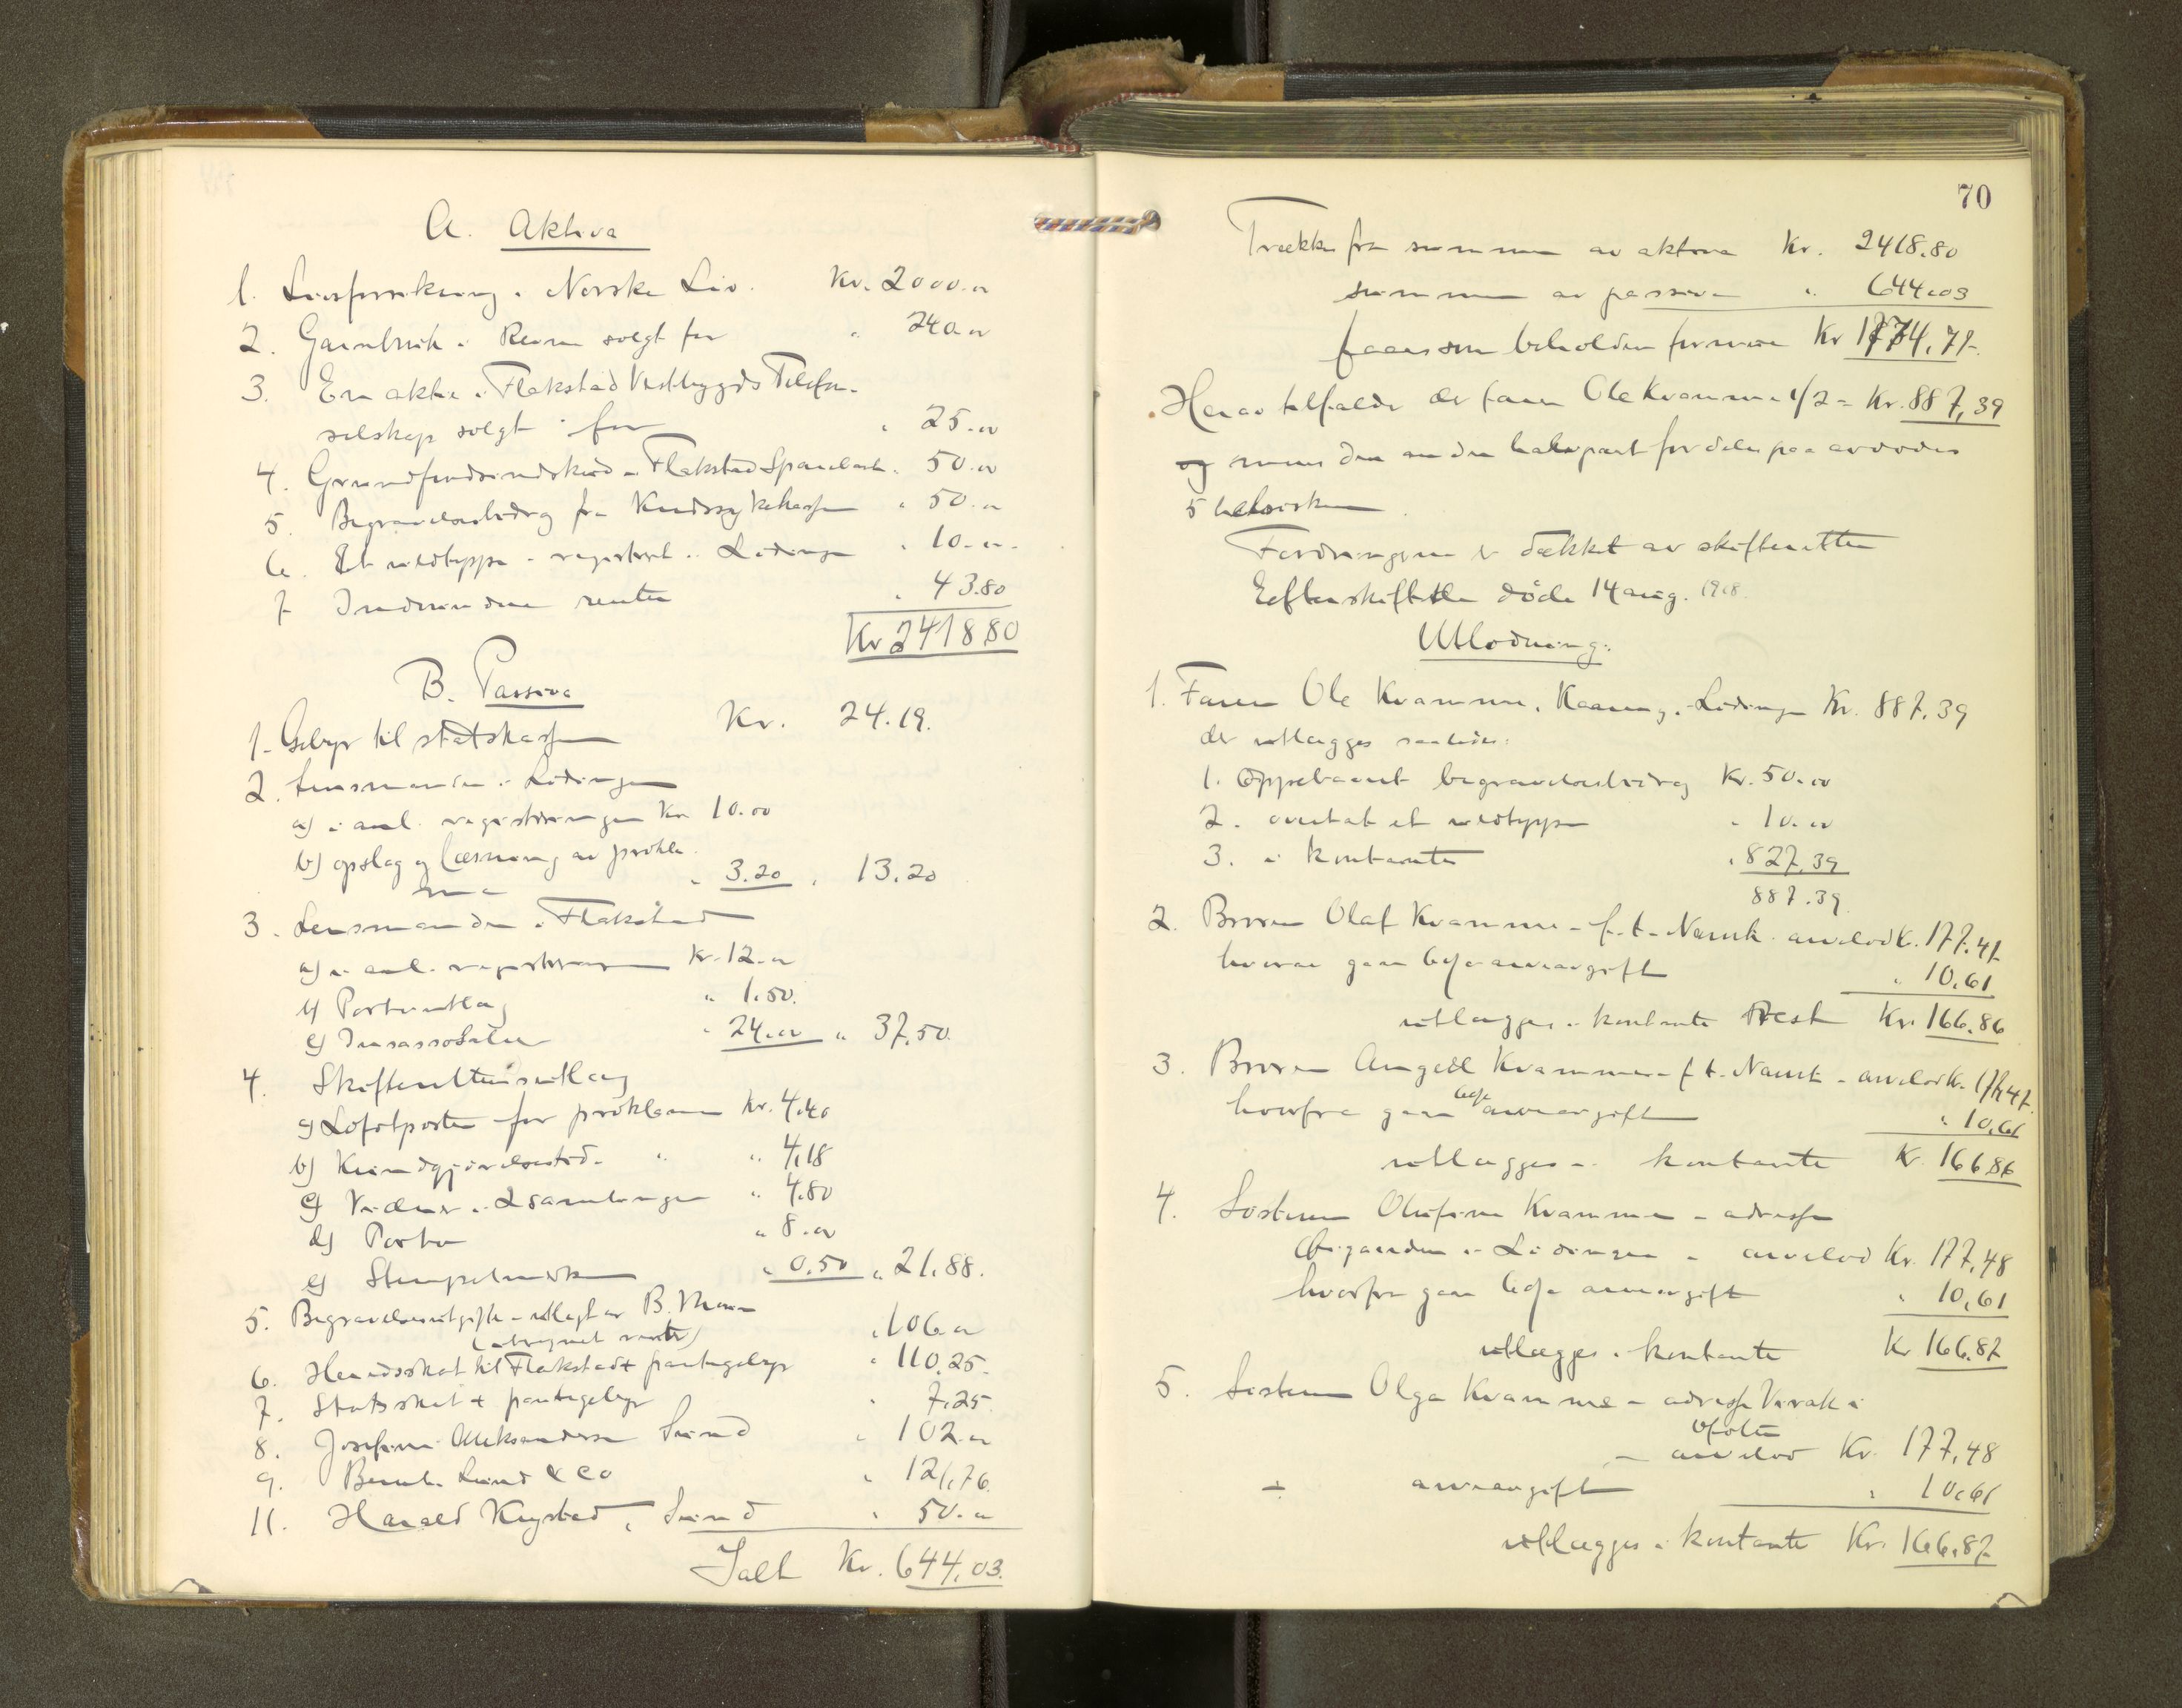 A. Aktiva
1. Livsforsikring i Norske Liv. Kr. 2000.00
2. Garnbruk i Reine solgt for " 240.00
3. En aktie i Flakstad Vestbygds Telefon-
selskap solgt for " 25.00
4. Grundfondsindskud i Flakstad Sparebank " 50.00
5. Begravelsesbidrag fra Kredssykekassen " 50.00
6. Et vedteppe registrert i Lødingen " 10.00
7. Indvundne renter " 43.80
Kr 2418.80
B. Passiva
1. Gebyr til statskassen Kr. 24.19.
2. Lensmanden i Lødingen
a) i anl. registreringen Kr. 10.00
b) opslag og læsning av prokla-
ma " 3.20 " 13.20
3. Lensmanden i Flakstad
a) i anl. registreringen Kr. 12.00
b) Portoutlæg " 1.50.
c) Incassosalær " 24.00 " 37.50.
4. Skifterettens utlæg
a) Lofotposten for proklama Kr. 4.40
b) Kundgjørelsestid. " " 4.18
c) Vidner i 2 samlinger " 4.80
d) Porto " 8.00
e) Stempelmerker " 0.50 " 21.88.
5. Begravelsesutgifter utlagt av B.
(iberegnet renter) " 106.00
6. Heredsskat til Flakstad + pantegebyr " 110.25.
7. Statsskat + pantegebyr " 7.25.
8. Josefine Aleksandersen Sund " 102.00
9. Bernh. Lund & Co " 121.76.
11. Harald Krystad, Sund " 50.00
Ialt Kr. 644.03.
70
Trækkes fra summen av aktiva Kr. 2418.80
summen av passiva " 644.03
faaes som beholden formue Kr 1774,77.
Herav tilfalder der faren Ole Kvamme 1/2 = Kr. 887,39
og mens den anden halvpart fordeles paa avdødes
5 helsøsken.
Fordringerne er dækket av skifteretten
Efterskiftet døde 14 aug. 1918.
Utlodning:
1. Faren Ole Kvamme, Kaaring, Lødingen Kr. 887.39
der utlægges saaledes:
1. Oppebaaret begravelsesbidrag Kr. 50.00
2. overtat et vedteppe " 10.00
3. i kontanter " 827.39
887.39
2. Broren Olaf Kvamme - f.t. Narvik arvelod Kr. 177.47
hvorav gaar 6% arveavgift " 10.61
utlægges i kontanter Rest Kr. 166.86
3. Broren Angell Kvamme f.t. Narvik - arvelod Kr. 177.47
hvorfra gaar 6% arveavgift " 10.61
utlægges i kontanter Kr. 166.86
4. Søsteren Olufine Kvamme - adresse
i Lødingen - arvelod Kr. 177,48
hvorfra gaar 6% arveavgift " 10,61
utlægges i kontanter Kr 166.87
5. Søsteren Olga Kvamme - adresse i
Ofoten
- arvelod Kr. 177,48
÷ arveavgift " 10.61
utlægges i kontanter Kr. 166.87